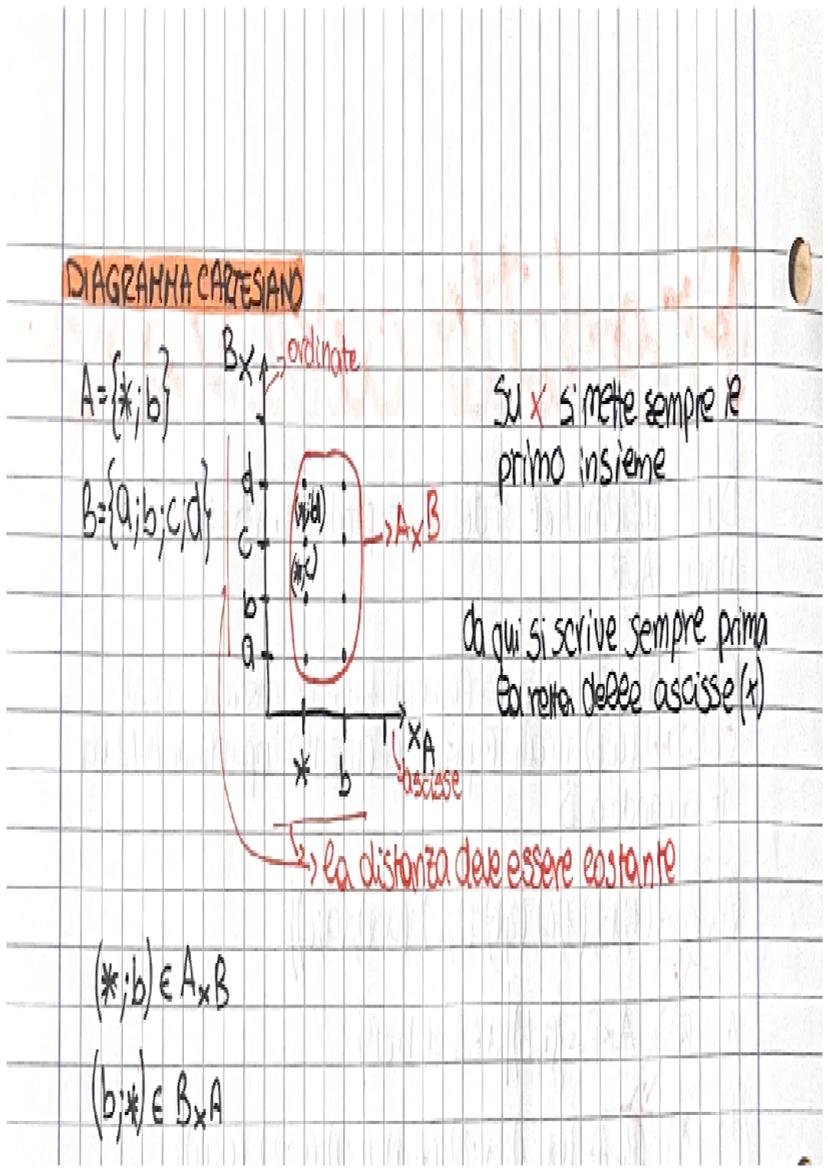 DIAGRAMMA CARTESIANO
A={*;b}
B={a;b;c;d}
Bx
ordinate
d
c
b
a
(*;d)
(*;c)
AxB
* b
xA
ascisse
Su x si mette sempre il
primo insieme
da qui si scrive sempre prima
la retta delle ascisse (x)
la distanza deve essere costante
(*;b) ∈ AxB
(b;*) ∈ BxA